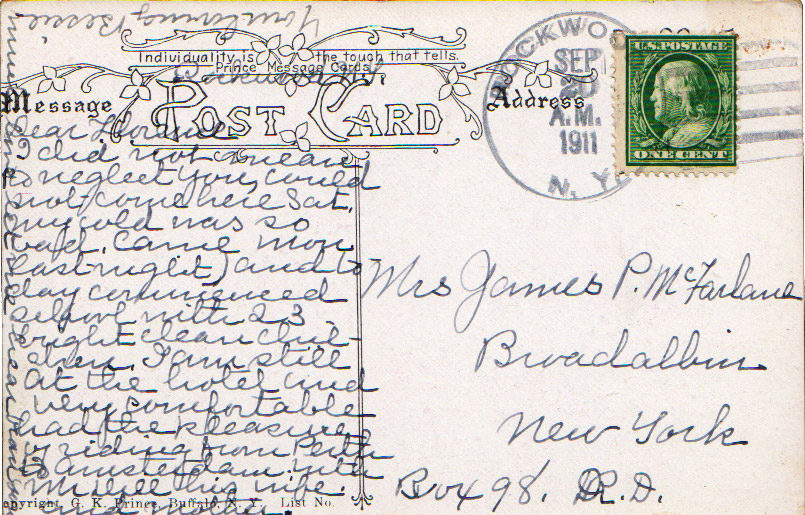 Your loving Bessie
Individuality is the touch that tells.
Prince Message Cards
Message
Post Card
Address
Dear Florence
I did not mean
to neglect you, could
not come here Sat.
my cold was so
bad. Came Mon
last night) and to
day commenced
school with 23
bright clean chil-
dren. I am still
at the hotel and
very comfortable
had the pleasure
of riding from Perth
to Amsterdam with
Mr his wife.
and
Copyright, G. K. Prince, Buffalo, N. Y. List No.
ROCKWOOD
SEP
20
A.M.
1911
N. Y.
U.S. POSTAGE
ONE CENT
Mrs James P. McFarlane
Broadalbin
New York
Box 98. R.D.